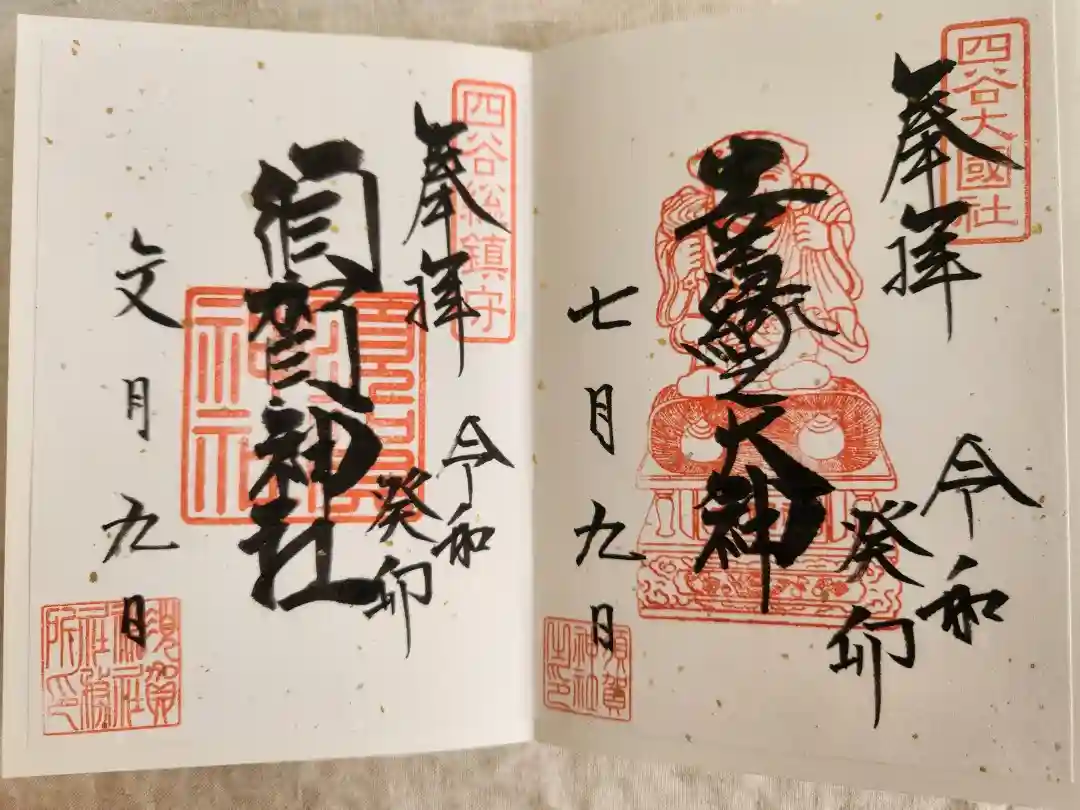 四谷大國社
奉拝
令和
癸卯
縁
大神
七月九日
須賀
神社
之印
四谷総鎮守
奉拝
令和
癸卯
須賀神社
須賀
神社
文月九日
須賀
神社
社務
所印